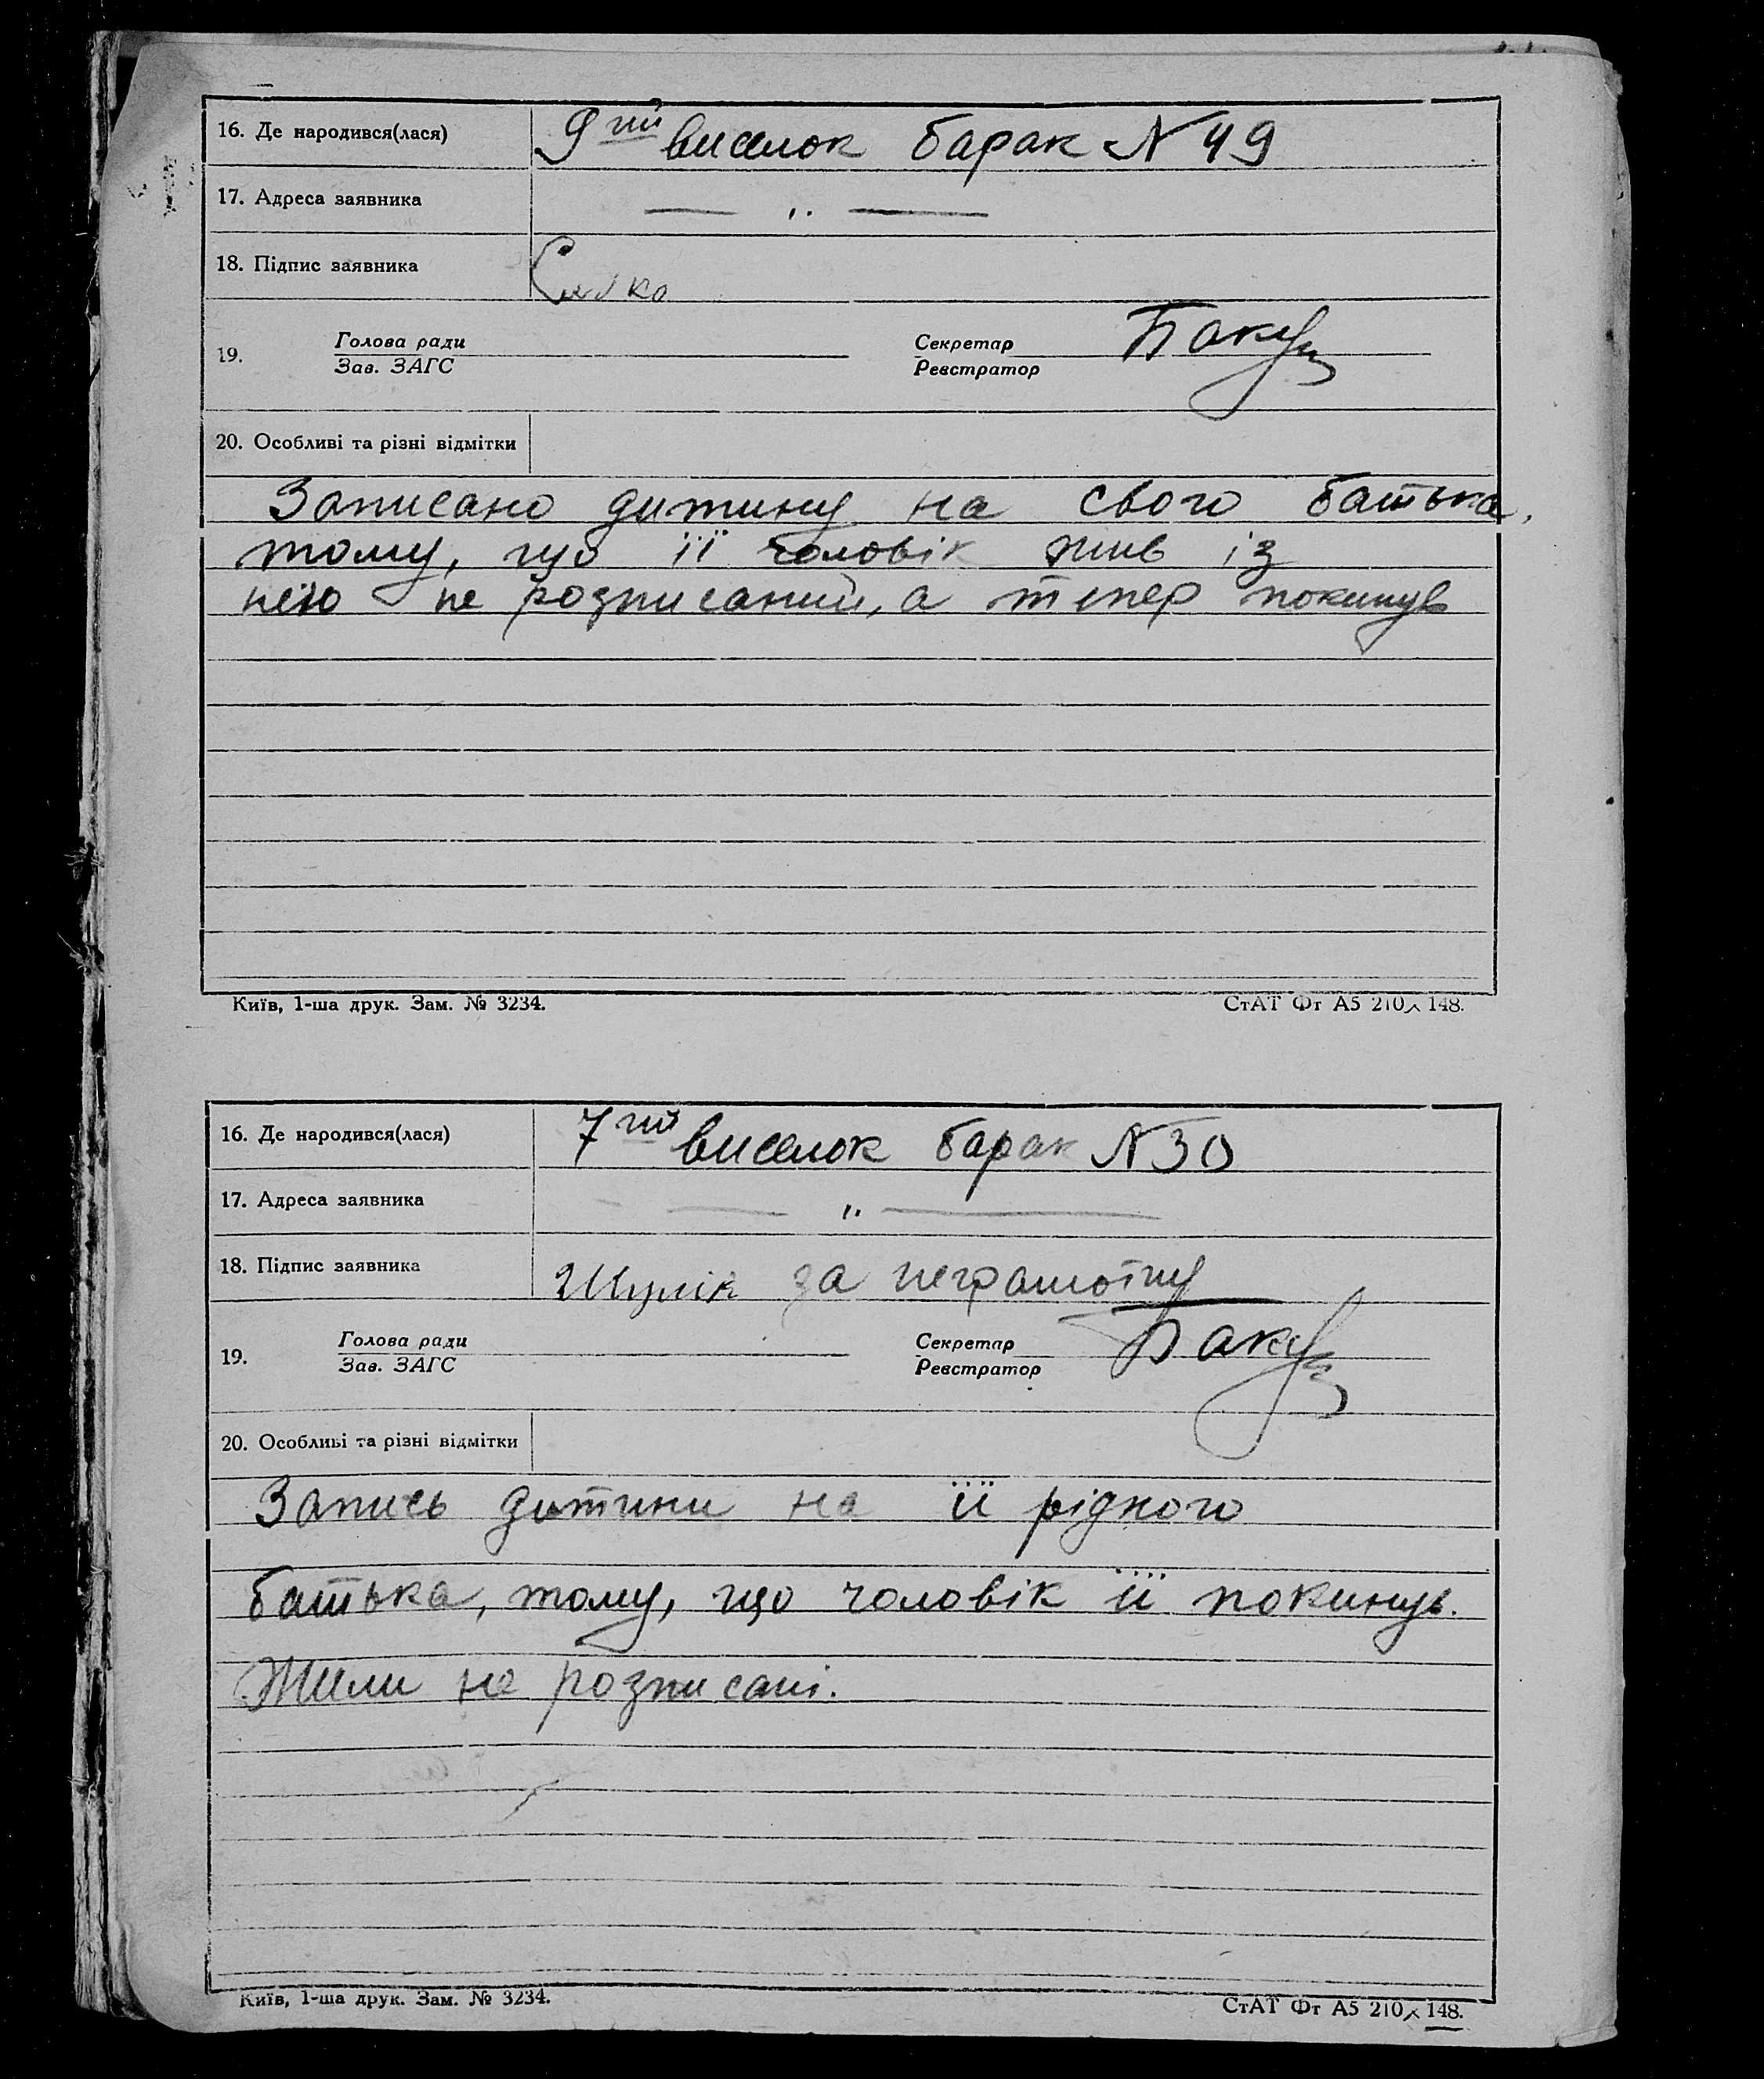 16. Де народився(лася) 9ий виселок барак N 49
17. Адреса заявника — „ —
18. Підпис заявника
19. Голова ради Секретар Бакун
Зав. ЗАГС Реєстратор
20. Особливі та різні відмітки
Записано дитину на свого батька,
тому, що її чоловік жив із
нею не розписаний, а тепер покинув
Київ, 1-ша друк. Зам. № 3234. СтАТ Фт А5 210×148.
16. Де народився(лася) 7ий виселок барак N 30
17. Адреса заявника — „ —
18. Підпис заявника Шулік за неграмотну
19. Голова ради Секретар Бакун
Зав. ЗАГС Реєстратор
20. Особливі та різні відмітки
Запись дитини на її рідного
батька, тому, що чоловік її покинув.
Жили не розписані.
Київ, 1-ша друк. Зам. № 3234. СтАТ Фт А5 210×148.